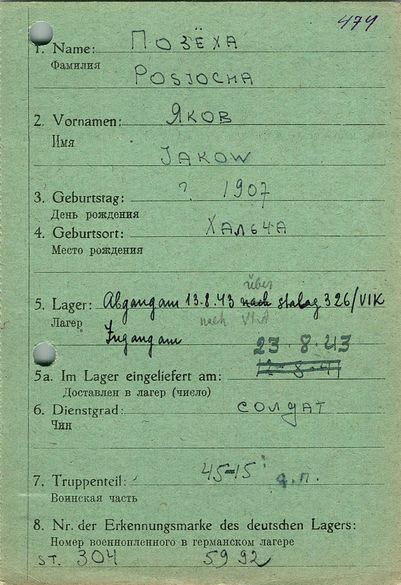 474
1. Name: ПОЗЁХА
Фамилия
POSJOCHA
2. Vornamen: ЯКОВ
Имя
JAKOW
3. Geburtstag: ? 1907
День рождения
4. Geburtsort: ХАЛЬЧА
Место рождения
über
5. Lager: Abgang am 13.8.43 nach Stalag 326/VIK
Лагер nach VI A
Zugang am
23.8.43
5a. Im Lager eingeliefert am:
Доставлен в лагер (число)
6. Dienstgrad: СОЛДАТ
Чин
7. Truppenteil: 45-15
Воинская часть
8. Nr. der Erkennungsmarke des deutschen Lagers:
Номер военнопленного в германском лагере
ST. 304 5992